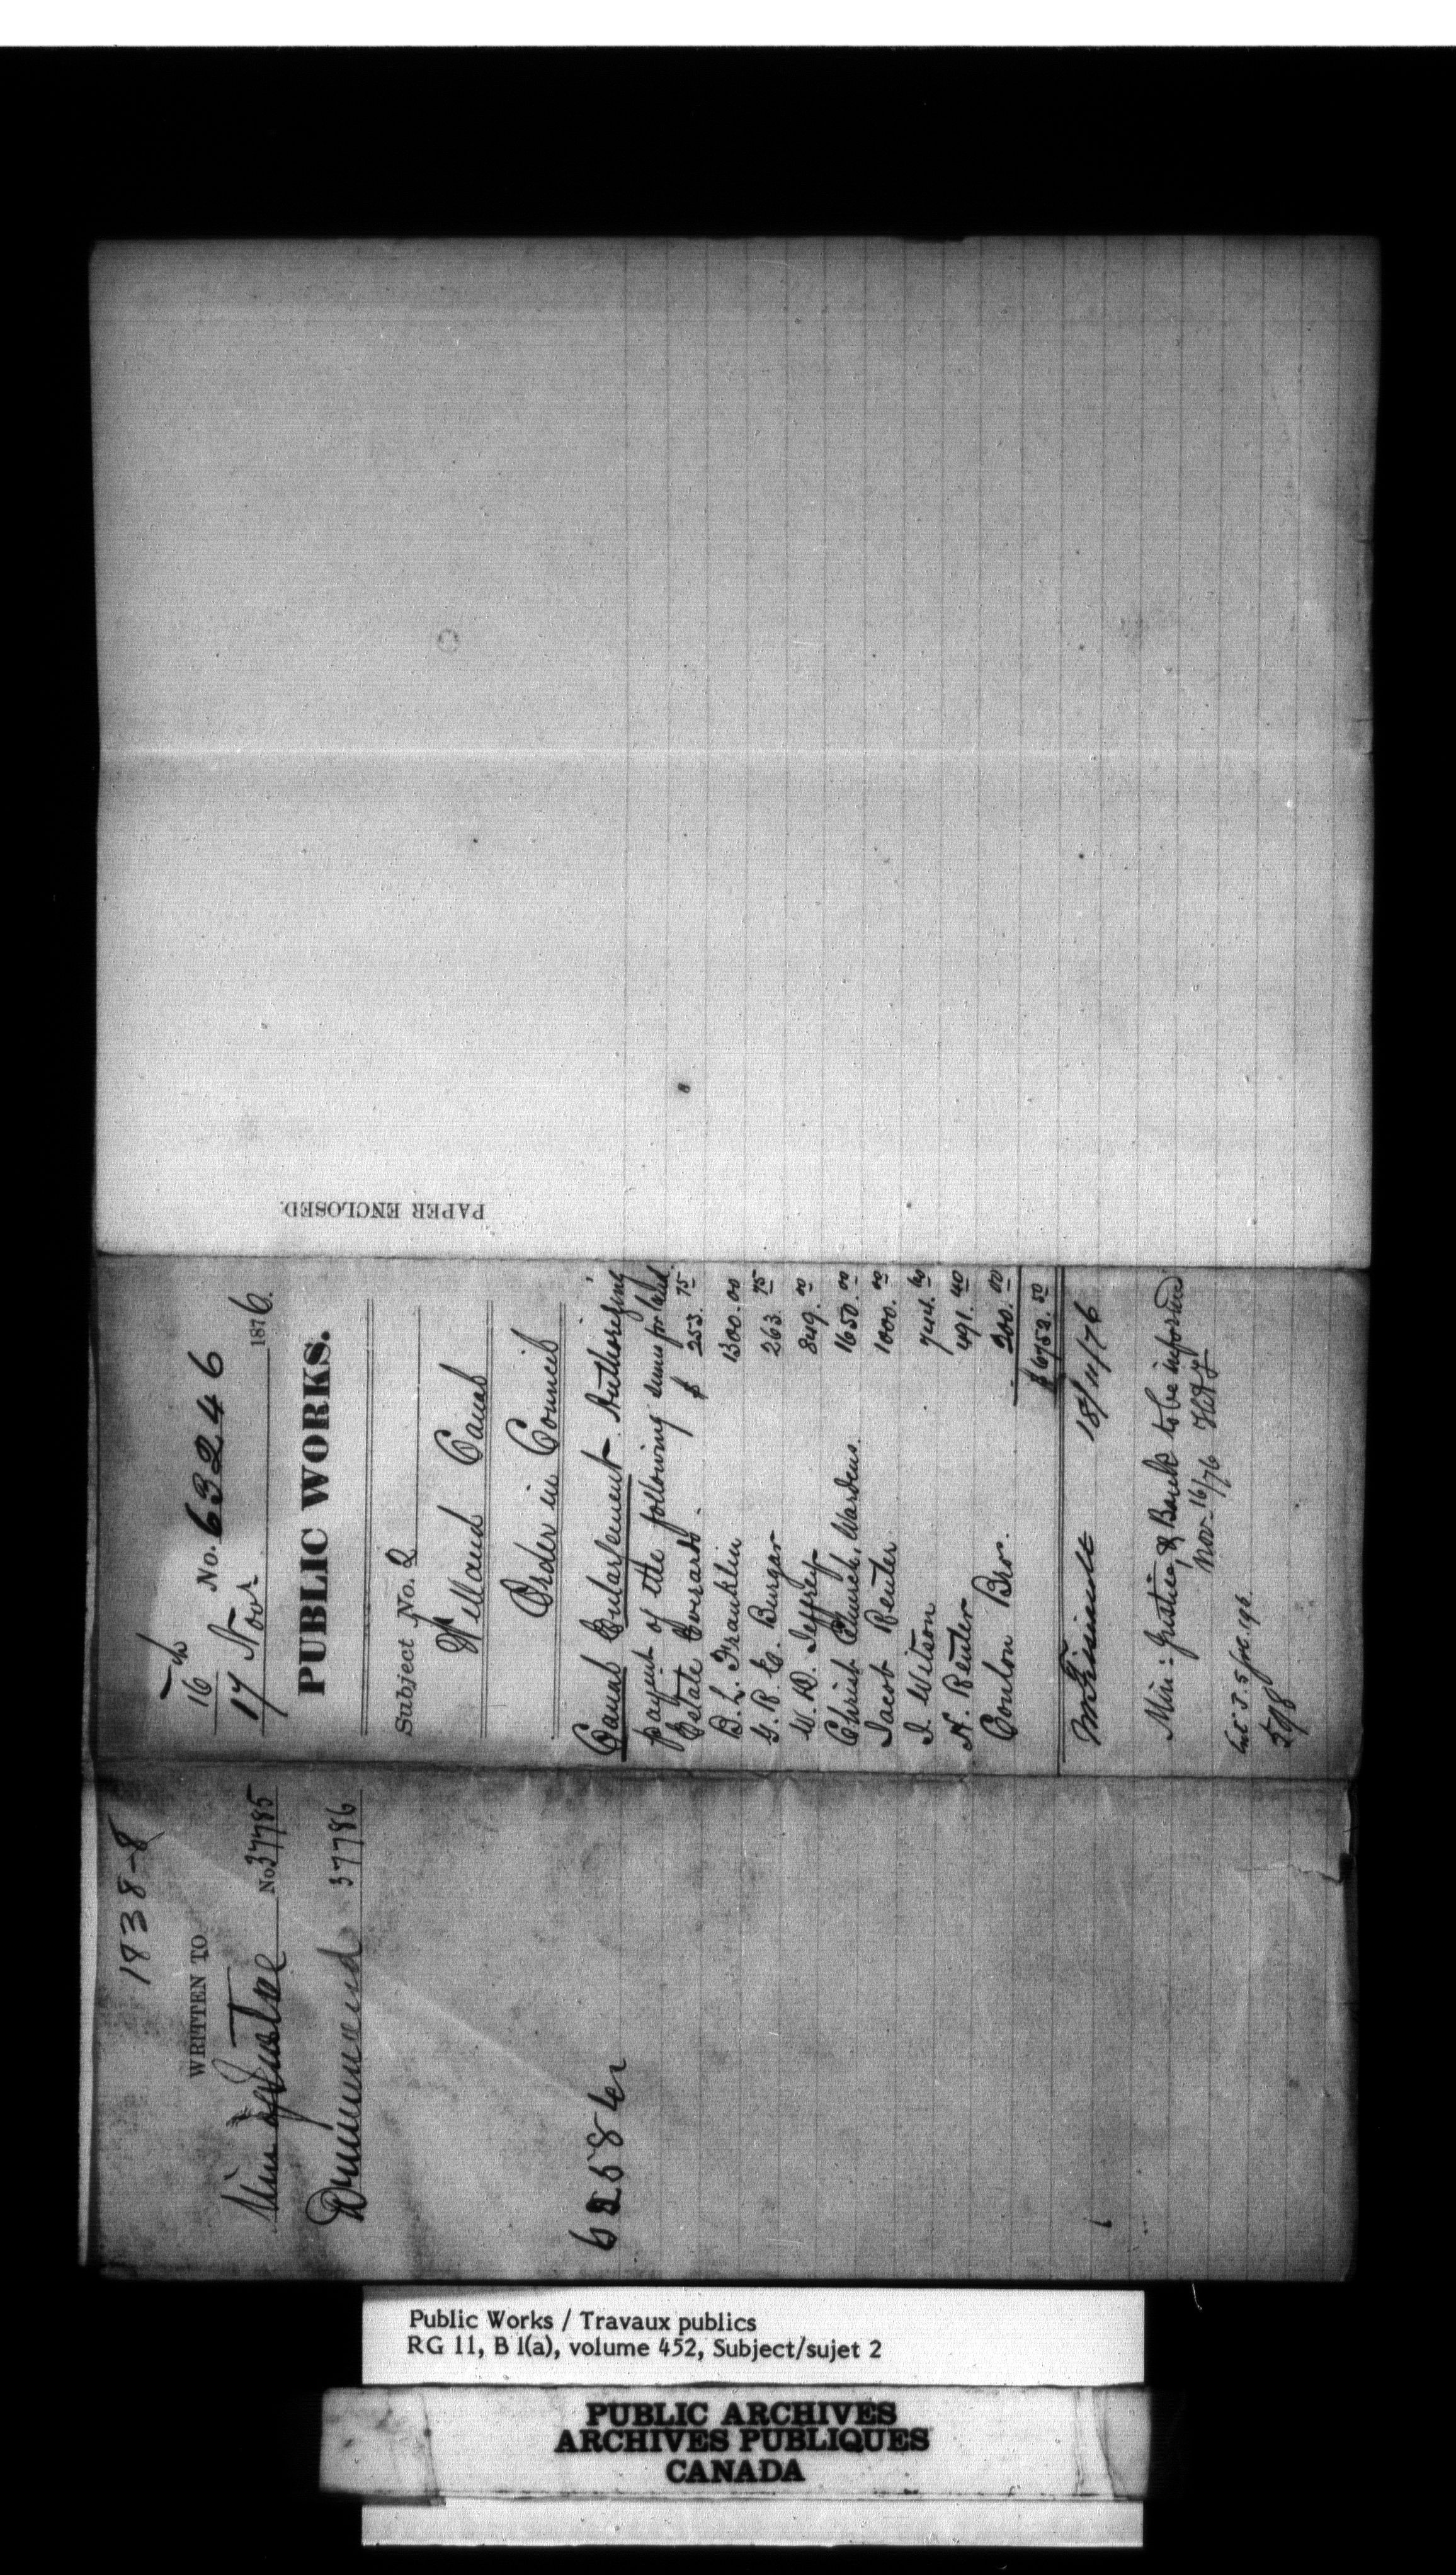 1838-8
WRITTEN TO
Min of Justice No. 37785
Drummond 37786
62584
16
17 Novr 1876.
No. 63246
PUBLIC WORKS.
Subject No. 2
Welland Canal
Order in Council
Canal Enlargement. Authorizing
payment of the following sums for land.
Estate Everardo. $ 253.75
B. L. Franklin 1300.00
G. R. E. Burgar 263.75
W. D. Jeffrey 849.00
Christ Church, Wardens. 1650.00
Jacob Reuter 1000.00
I. Wilson 744.60
N. Reuter 491.40
Conlon Bros. 200.00
$6752.50
18/11/76
Min: Justice, & Bank to be informed
Nov. 16/76
598
PAPER ENCLOSED.
Public Works / Travaux publics
RG 11, B 1(a), volume 452, Subject/sujet 2
PUBLIC ARCHIVES
ARCHIVES PUBLIQUES
CANADA